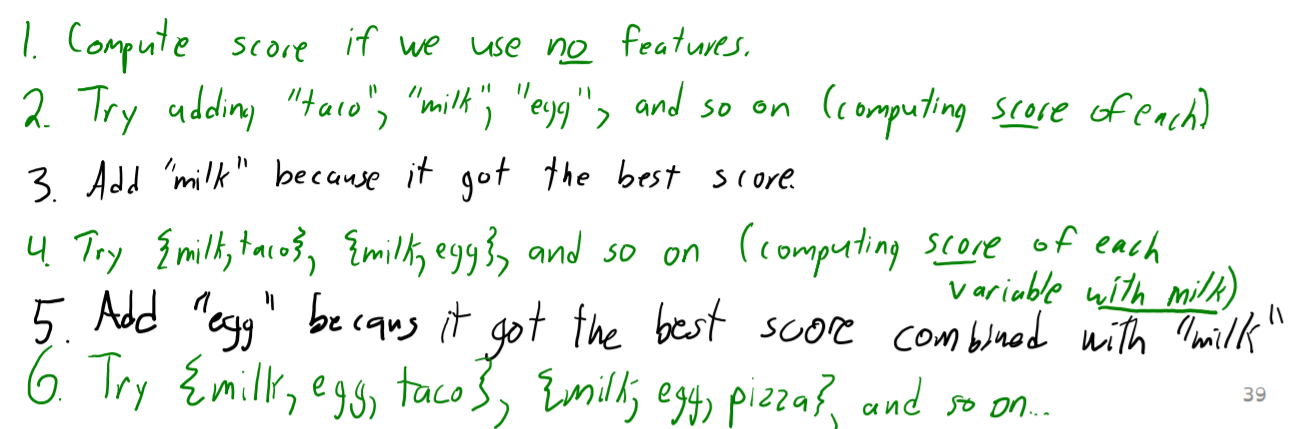 1. Compute score if we use no features.
2. Try adding "taco", "milk", "egg", and so on (computing score of each)
3. Add "milk" because it got the best score.
4. Try {milk, taco}, {milk, egg}, and so on (computing score of each
variable with milk)
5. Add "egg" becaus it got the best score combined with "milk"
6. Try {milk, egg, taco}, {milk, egg, pizza}, and so on...
39